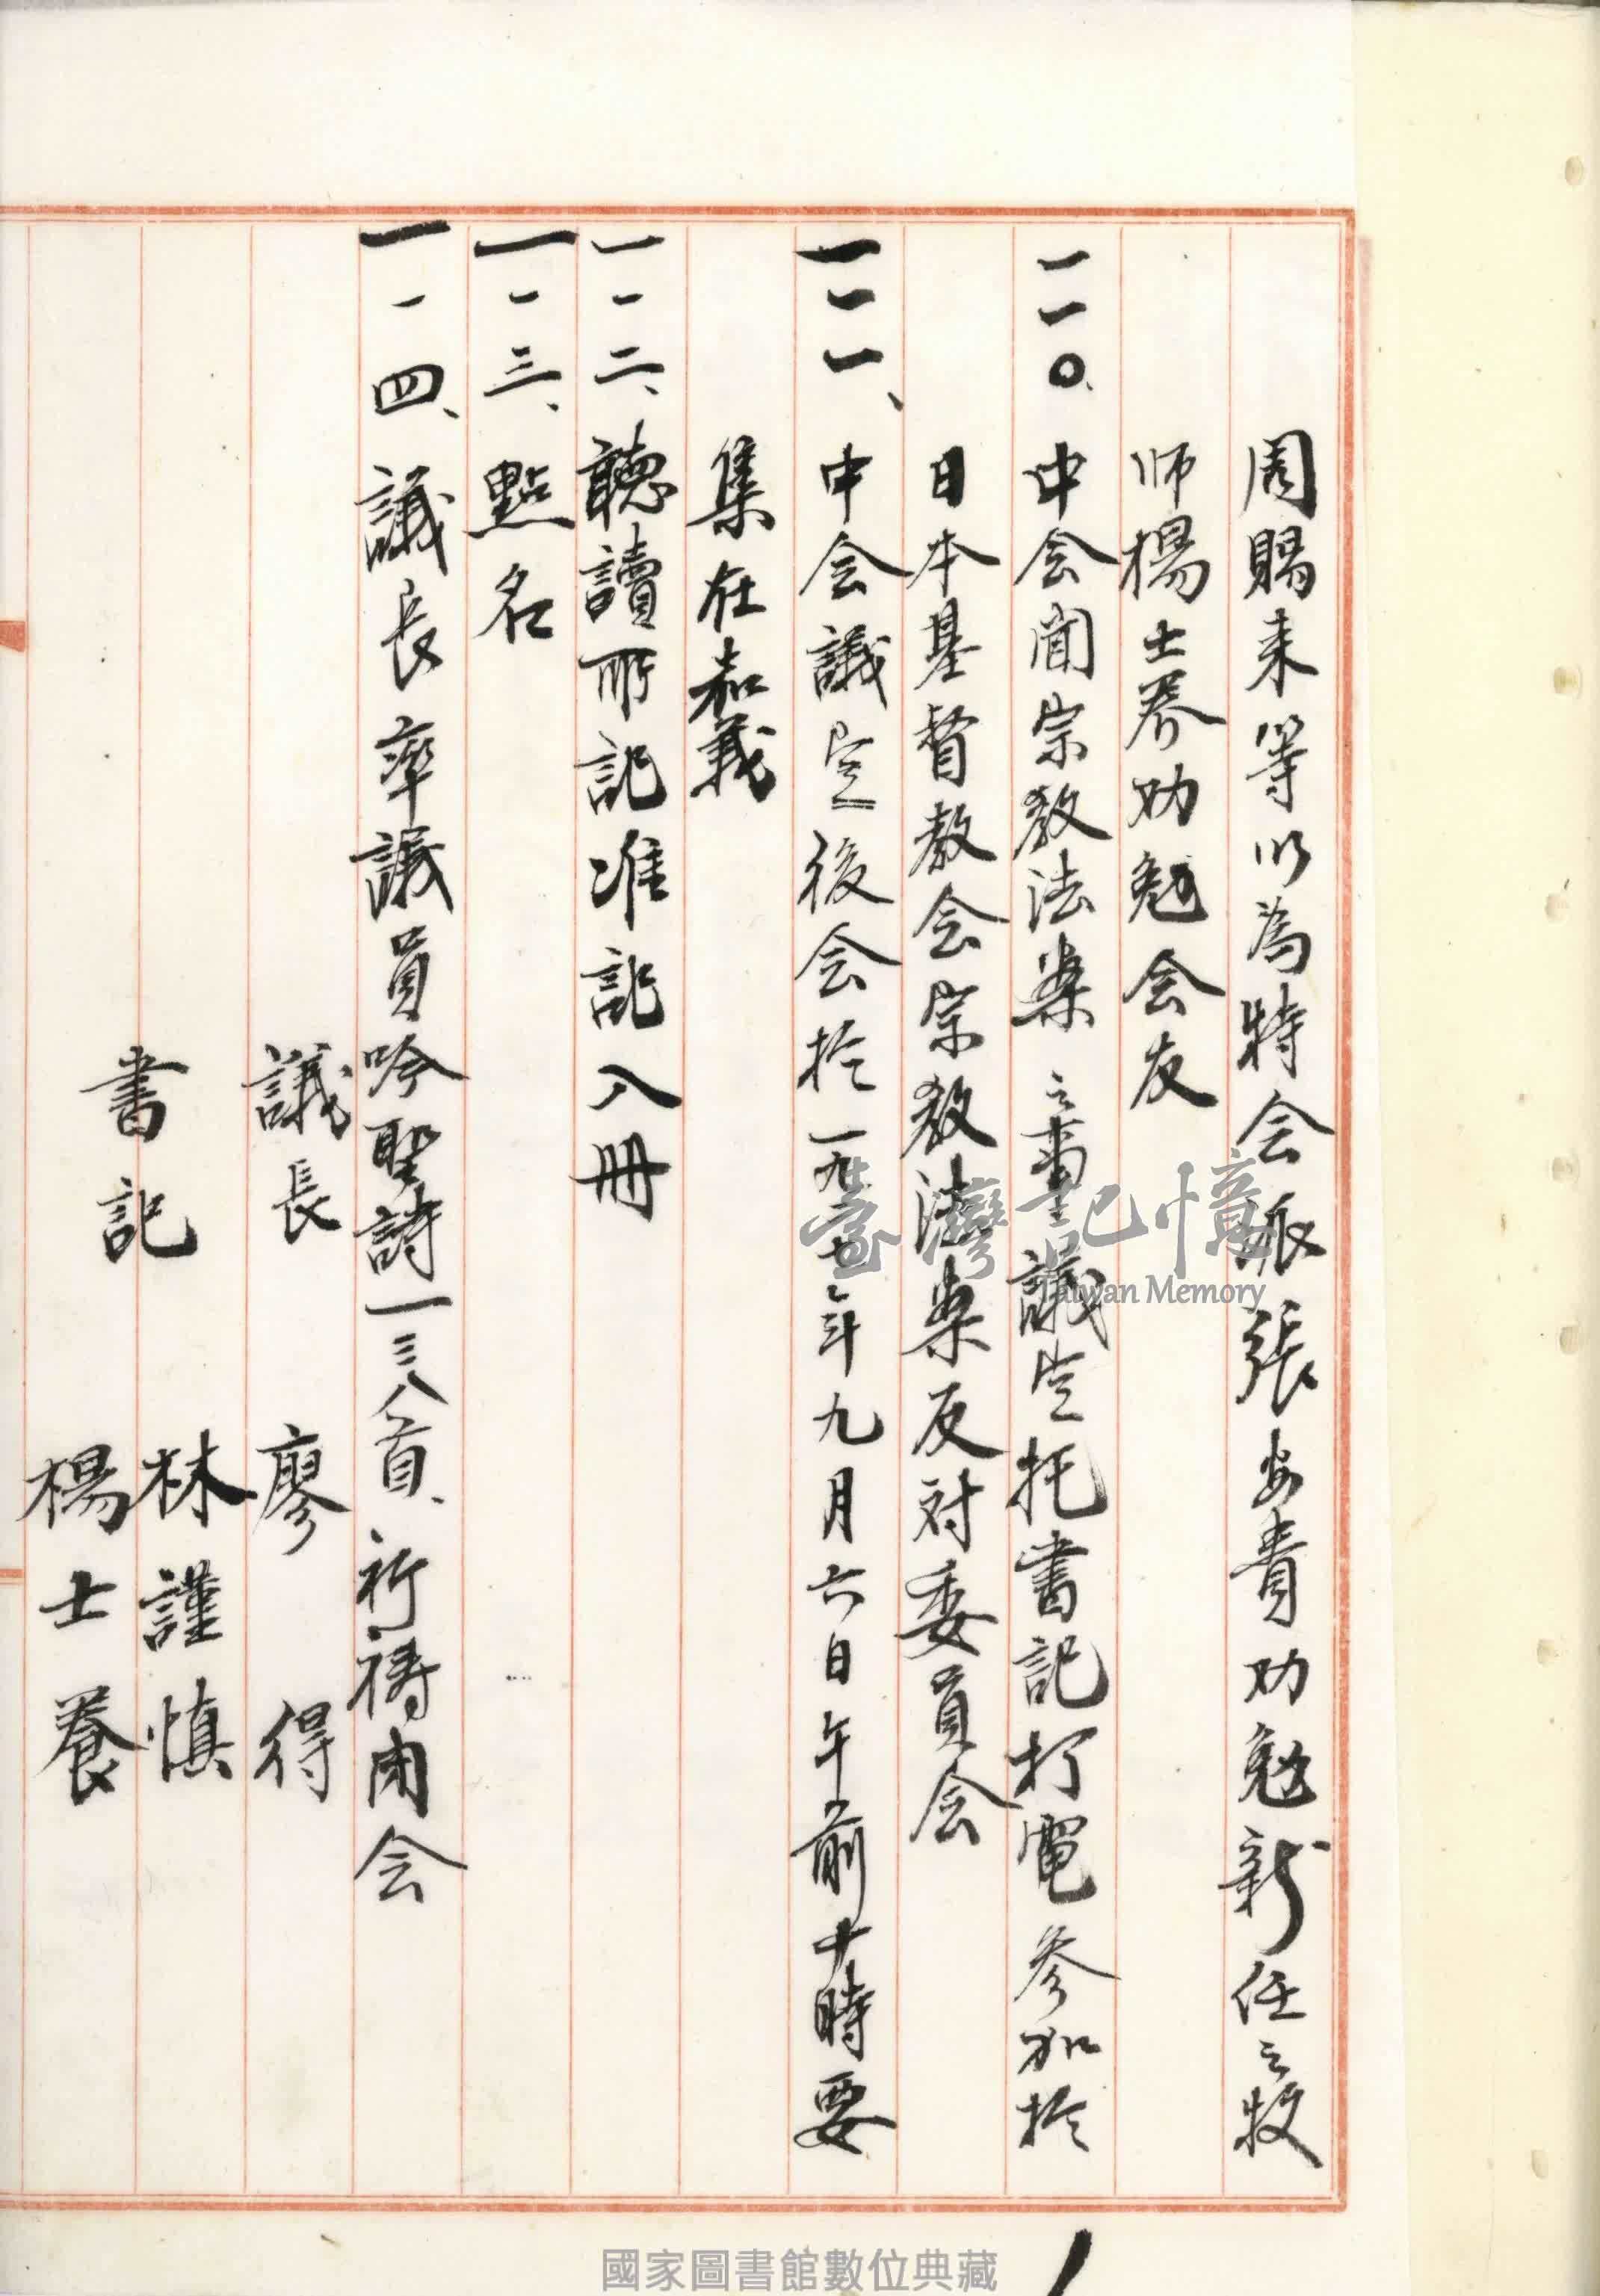 周賜來等以為特会派張安貴劝勉新任之牧
师楊士养劝勉会友
一一〇、中会聞宗教法案之事議定托書記打電参加於
日本基督教会宗教法案反対委員会
一一一、中会議定後会於一九二七年九月六日午前十時要
集在嘉義
一一二、聽讀所記准記入冊
一一三、點名
一一四、議長率議員吟聖詩一三八首、祈禱闭会
議長 廖得
書記 林謹慎
楊士養
臺灣記憶
Taiwan Memory
國家圖書館數位典藏